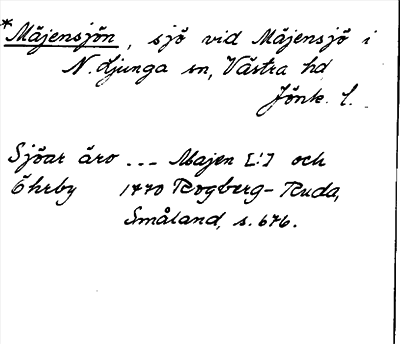 *Mäjensjön, sjö vid Mäjensjö i
N. Ljunga sn, Västra hd
Jönk. l.
Sjöar äro ... Majen [!] och
Öhrby 1770 Rogberg-Ruda,
Småland, s. 676.